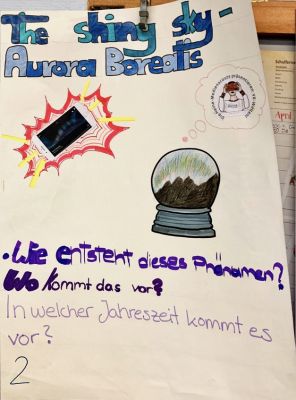 The shiny sky -
Aurora Borealis
April
• Wie entsteht dieses Phänamen?
Wo kommt das vor?
In welcher Jahreszeit kommt es
vor?
2